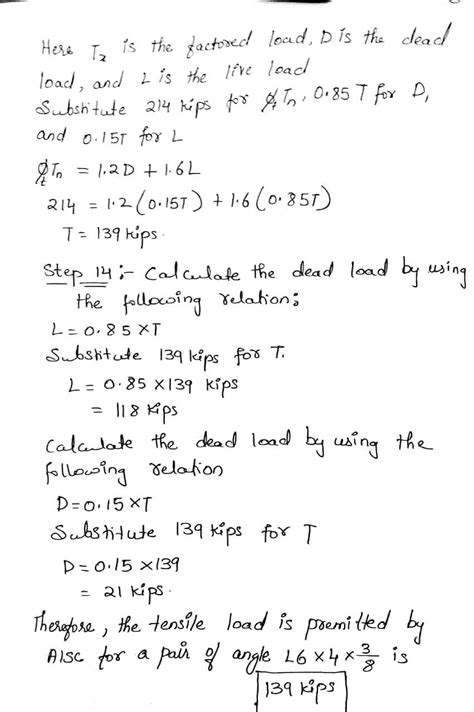 Here T₂ is the factored load, D is the dead
load, and L is the live load
Substitute 214 kips for ϕₜTₙ, 0.85T for D,
and 0.15T for L
ϕₜTₙ = 1.2D + 1.6L
214 = 1.2(0.15T) + 1.6(0.85T)
T = 139 kips.
Step 14 :- Calculate the dead load by using
the following relation:
L = 0.85 ×T
Substitute 139 kips for T.
L = 0.85 ×139 kips
= 118 kips
Calculate the dead load by using the
following relation
D = 0.15 ×T
Substitute 139 kips for T
D = 0.15 ×139
= 21 kips.
Therefore, the tensile load is premitted by
AISC for a pair of angle L6 × 4 × 3/8 is
139 kips